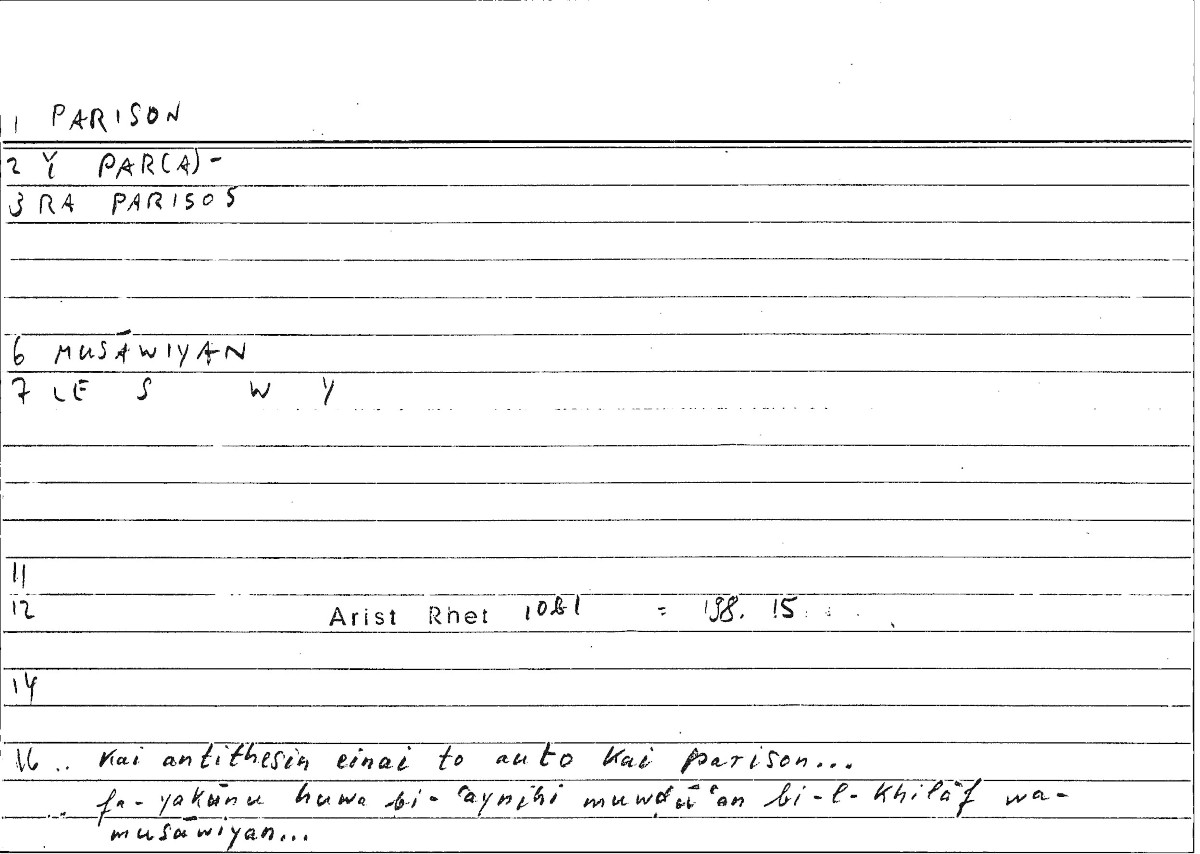 1 PARISON
2 Y PAR(A)-
3 RA PARISOS
6 MUSĀWIYAN
7 LE S W Y
11
12 Arist Rhet 10b1 = 198. 15
14
16 .. kai antithesin einai to auto kai parison...
.. fa-yakūnu huwa bi-ʿaynihi muwḍūʿan bi-l-khilāf wa-
musāwiyan...